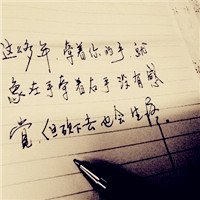 这么多年 牵着你的手 就
象左手牵着右手没有感
觉,但砍下去也会生疼。